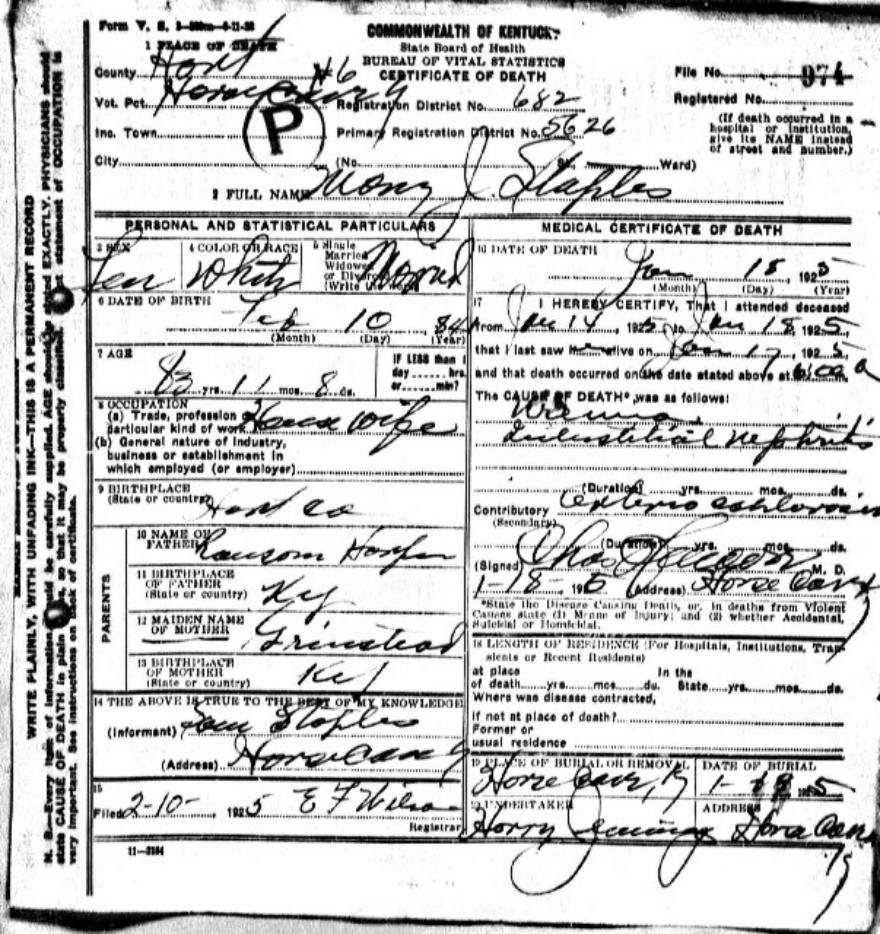 Form V. S.
COMMONWEALTH OF KENTUCKY
State Board of Health
BUREAU OF VITAL STATISTICS
CERTIFICATE OF DEATH
1 PLACE OF DEATH
County Hart
File No. 974
Vot. Pct. Horse Cave #6
Registration District No. 682
Registered No.
Inc. Town
Primary Registration District No. 5626
(If death occurred in a
hospital or institution,
give its NAME instead
of street and number.)
P
City (No. St., Ward)
2 FULL NAME J Staples
PERSONAL AND STATISTICAL PARTICULARS
3 SEX
Fem
4 COLOR OR RACE
White
5 Single
Married
Widowed
or Divorced
(Write the word)
6 DATE OF BIRTH
Feb 10, 84
(Month) (Day) (Year)
7 AGE
83 yrs. 11 mos. 8 ds.
IF LESS than 1
day ...... hrs.
or ...... min?
8 OCCUPATION
(a) Trade, profession or
particular kind of work House wife
(b) General nature of industry,
business or establishment in
which employed (or employer)
9 BIRTHPLACE
(State or country)
Hart co
PARENTS
10 NAME OF
FATHER Ransom
11 BIRTHPLACE
OF FATHER
(State or country) Ky
12 MAIDEN NAME
OF MOTHER Grinstead
13 BIRTHPLACE
OF MOTHER
(State or country) Ky
14 THE ABOVE IS TRUE TO THE BEST OF MY KNOWLEDGE
(Informant) Staples
(Address) Horse Cave Ky
15
Filed 2-10-, 1925 E F Wilson
Registrar
11—3184
MEDICAL CERTIFICATE OF DEATH
16 DATE OF DEATH
Jan 18, 1925
(Month) (Day) (Year)
17 I HEREBY CERTIFY, That I attended deceased
from Jan 14, 1925, to Jan 18 1925,
that I last saw her alive on Jan 17, 1925
and that death occurred on the date stated above at 6:00 a
The CAUSE OF DEATH* was as follows:
Uremia,
Interstitial Nephritis
(Duration) yrs. mos. ds.
Contributory
(Secondary)
(Duration) yrs. mos. ds.
(Signed) Chas M. D.
1-18-, 1925 (Address) Horse Cave Ky
*State the Disease Causing Death, or, in deaths from Violent
Causes state (1) Means of Injury; and (2) whether Accidental,
Suicidal or Homicidal.
18 LENGTH OF RESIDENCE (For Hospitals, Institutions, Transients or Recent Residents)
at place In the
of death yrs. mos. ds. State yrs. mos. ds.
Where was disease contracted,
if not at place of death?
Former or
usual residence
19 PLACE OF BURIAL OR REMOVAL
Horse Cave, Ky
DATE OF BURIAL
20 UNDERTAKER
Harry Jennings
ADDRESS
Horse Cave
Ky
WRITE PLAINLY, WITH UNFADING INK—THIS IS A PERMANENT RECORD